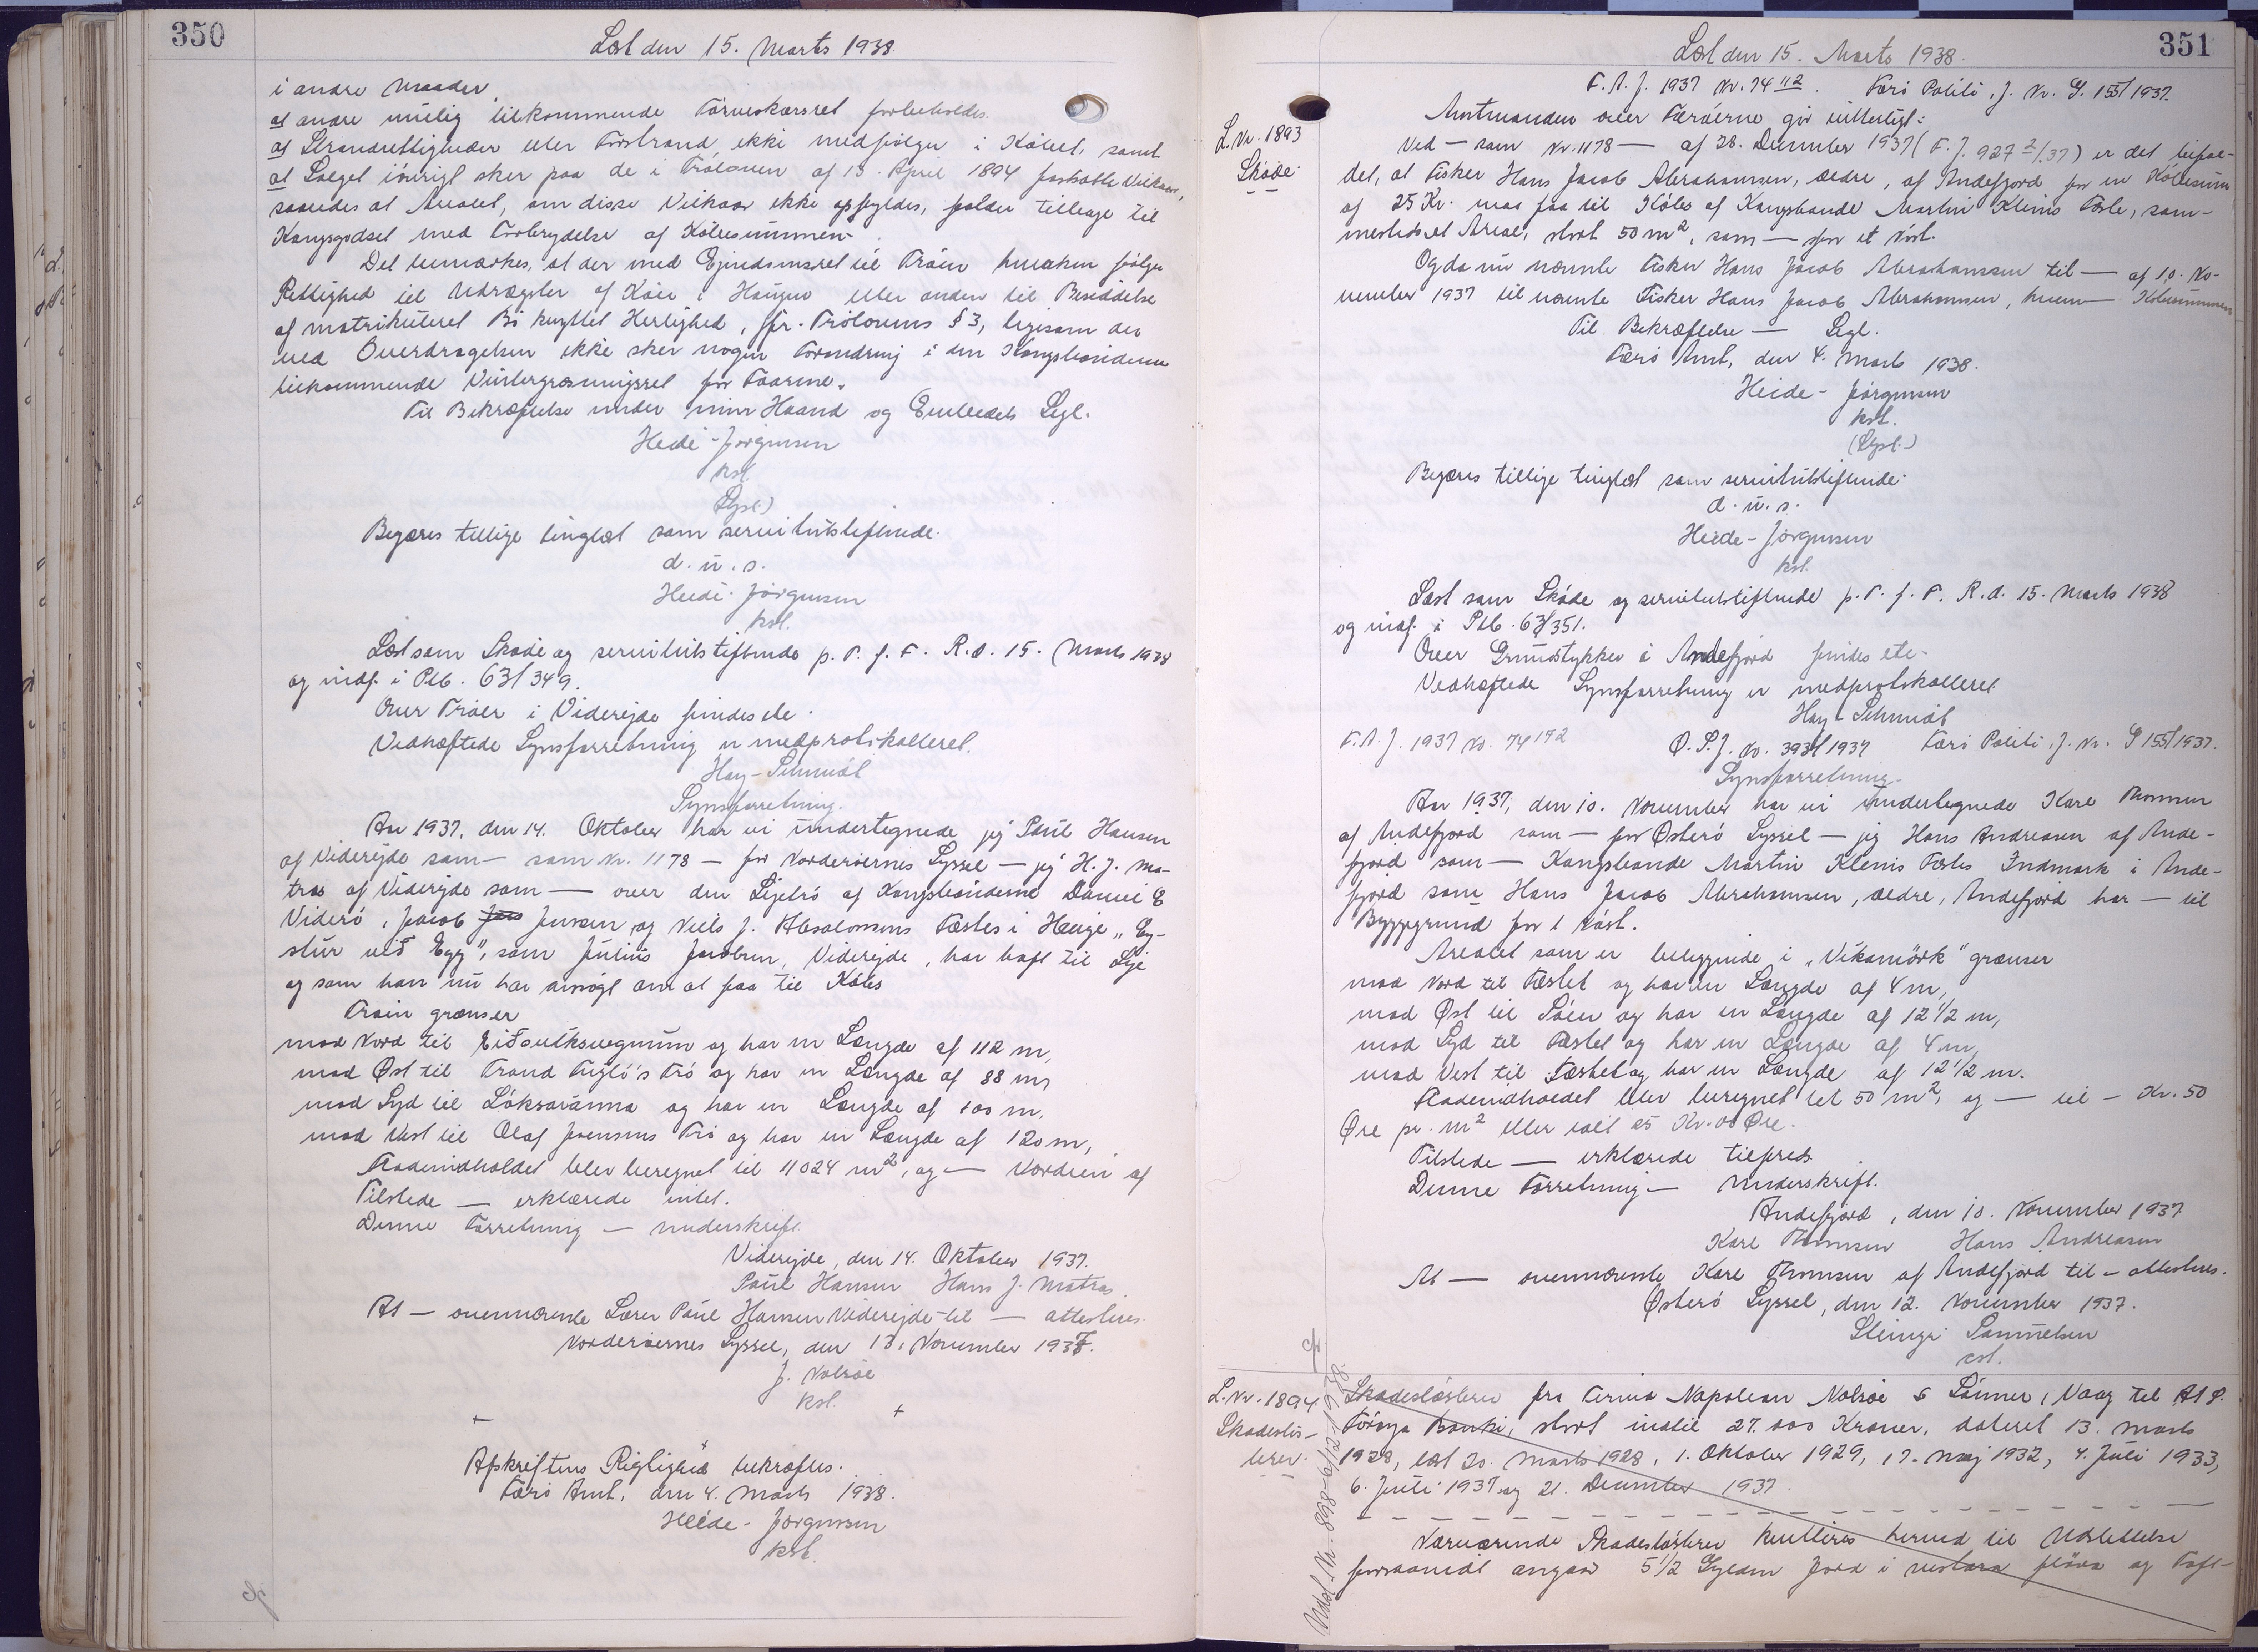 350
Læst den 15. Marts 1938
i andre Maader.
at andre mulig tilkommende Tørveskærsret forbeholdes.
at Strandrettigheder eller Forstrand ikke medfølger i Købet, samt
at Salget iøvrigt sker paa de i Trøloven af 13. April 1894 fastsatte Vilkaar,
saaledes at Arealet, om disse Vilkaar ikke opfyldes, falder tilbage til
Kongsgodset med Fortrydelse af Købesummen.
Det bemærkes, at der med Ejendomsret til Trøen hverken følger
Rettighed til Udrægsler af Køer i Haugen eller anden til Besiddelse
af matrikuleret Bø knyttet Herlighed, jfr. Trølovens § 3, ligesom der
ved Overdragelsen ikke sker nogen Forandring i den Kongsbønderne
tilkommende Vintergræsningsret for Faarene.
Til Bekræftelse under min Haand og Embedets Segl.
Heide-Jørgensen
kst.
(Segl.)
Begæres tillige tinglæst som servitutstiftende.
d. u. s.
Heide-Jørgensen
kst.
Læst som Skøde og servitutstiftende p. T. f. F. R. d. 15. Marts 1938
og indf. i Ptb. 63/349.
Over Trøer i Viderejde findes ete.
Vedhæftede Synsforretning er medprotokolleret.
Hay-Schmidt
Synsforretning.
Aar 1937, den 14. Oktober har vi undertegnede jeg Poul Hansen
af Viderejde som — som Nr. 1178 — for Norderøernes Syssel — jeg H. J. Ma-
tras af Viderejde som — over den Lejetrø af Kongsbønderne Daniel E
Viderø, Jacob Jens Jensen, og Niels J. Absalonsens Fæstes i Hauge "Ey-
stur við Egg", som Julius Jacobsen, Viderejde, har haft til Leje
og som han nu har ansøgt om at faa til Købs
Trøen grænser
mod Nord til Eiðsvíksvegnum og har en Længde af 112 m,
mod Øst til Trond Fuglø's Trø og har en Længde af 88 m,
mod Syd til Løksaránna og har en Længde af 100 m,
mod Vest til Olaf Joensens Trø og har en Længde af 120 m,
Fladeindholdet blev beregnet til 11024 m², og — Værdien af
Tilstede — erklærede intet.
Denne Forretning — underskrift.
Viderejde, den 14. Oktober 1937.
Poul Hansen Hans J. Matras.
At — ovennævnte Lærer Poul Hansen Viderejde til — attesteres.
Norderøernes Syssel, den 13. November 1937.
J. Nolsøe
kst.
Afskriftens Rigtighed bekræftes.
Færø Amt, den 4. Marts 1938.
Heide-Jørgensen
kst.
351
Læst den 15. Marts 1938.
F. A. J. 1937 Nr. 74 112. Færø Politi. J. Nr. G. 155/1937.
L. Nr. 1893
Skøde
Amtmanden over Færøerne gør vitterligt:
Ved — som Nr. 1178 — af 28. December 1937 (F. J. 927 2/37) er det bifal-
det, at Fisker Hans Jacob Abrahamsen, ældre, af Andefjord for en Købesum
af 25 Kr. maa faa til Købs af Kongsbonde Martin Klenis Fæste, sam-
mesteds et Areal, stort 50 m², som — for et Nøst.
Og da nu nævnte Fisker Hans Jacob Abrahamsen til — af 10. No-
vember 1937 til nævnte Fisker Hans Jacob Abrahamsen, hvem — Købesummen
Til Bekræftelse — Segl.
Færø Amt, den 4. Marts 1938.
Heide-Jørgensen
kst.
(Segl.)
Begæres tillige tinglæst som servitutstiftende.
d. u. s.
Heide-Jørgensen
kst.
Læst som Skøde og servitutstiftende p. T. f. F. R. d. 15. Marts 1938
og indf. i Ptb. 63/351.
Over Grundstykker i Andefjord findes ete.
Vedhæftede Synsforretning er medprotokolleret.
Hay-Schmidt
F. A. J. 1937 No. 74 192 Ø. S. J. No. 393/1937 Færø Politi. J. Nr. G 155/1937.
Synsforretning.
Aar 1937, den 10. November har vi undertegnede Kare Thomsen
af Andefjord som — for Østerø Syssel — jeg Hans Andreasen af Ande-
fjord som — Kongsbonde Martin Klenis Fæstes Indmark i Ande-
fjord som Hans Jacob Abrahamsen, ældre, Andefjord har — til
Byggegrund for 1 Nøst.
Arealet som er beliggende i "Víkamørk" grænser
mod Nord til Fæstet og har en Længde af 4 m,
mod Øst til Søen og har en Længde af 12 1/2 m,
mod Syd til Fæstet og har en Længde af 4 m,
mod Vest til Fæstet og har en Længde af 12 1/2 m.
Fladeindholdet blev beregnet til 50 m², og — til — Kr. 50
Øre pr. m² eller ialt 25 Kr. 00 Øre.
Tilstede — erklærede tilfreds.
Denne Forretning — Underskrift.
Andefjord, den 10. November 1937.
Kare Thomsen Hans Andreasen
At — ovennævnte Kare Thomsen af Andefjord til — attesteres.
Østerø Syssel, den 12. November 1937.
Steingr. Samuelsen
cst.
L. Nr. 1894
Skadesløs-
brev.
Skadesløsbrev fra Firma Napoleon Nolsøe & Sønner, Vaag til A/S
Føroya Banki, stort indtil 27.000 Kroner, dateret 13. Marts
1928, læst 20. Marts 1928, 1. Oktober 1929, 17. Maj 1932, 4. Juli 1933,
6. Juli 1937 og 21. December 1937.
Nærværende Skadesløsbrev kvitteres herved til Udslettelse
forsaavidt angaar 5 1/2 Gylden Jord i vestara fløva og Toft-